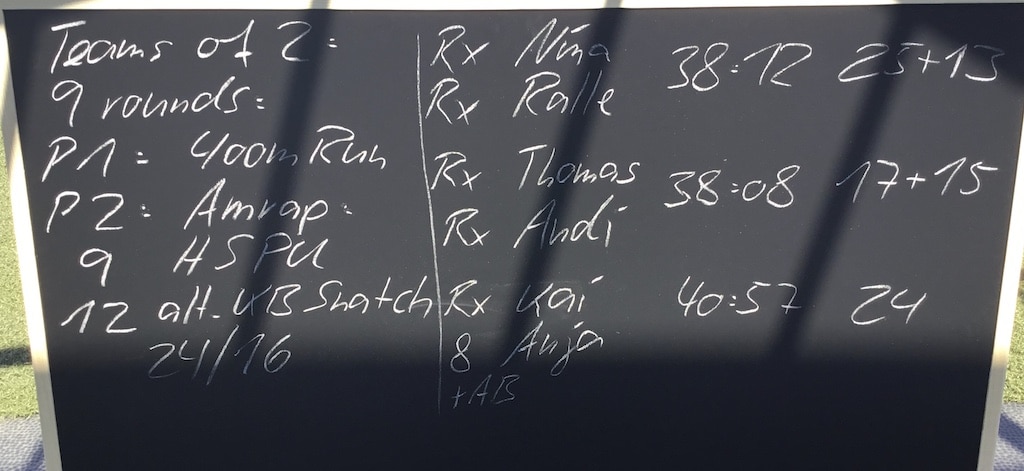 Teams of 2:
9 rounds:
P1: 400m Run
P2: Amrap:
9 HSPU
12 alt. KB Snatch
24/16
Rx Nina 38:12 25+13
Rx Ralle
Rx Thomas 38:08 17+15
Rx Andi
Rx Kai 40:57 24
8 Anja
+AB